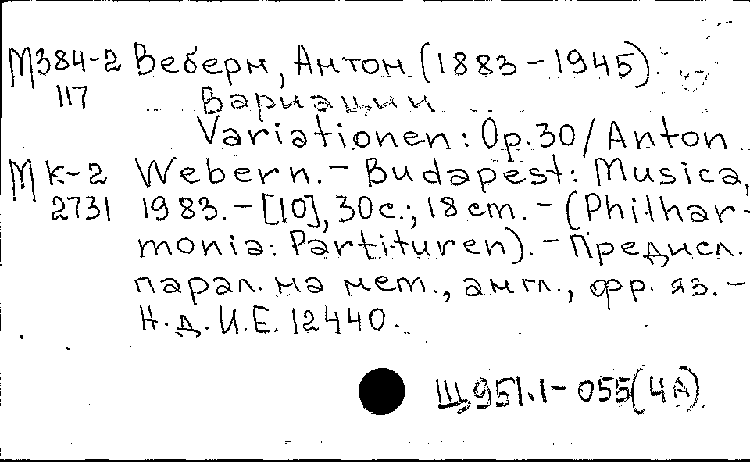 М384-2 Веберн, Антон (1883-1945).
117 Вариации
Variationen: Op. 30/Anton
МК-2 Webern. - Budapest: Musica,
2731 1983. - [10], 30 с.; 18 cm. - (Philhar-
monia: Partituren). - Предисл.
парал. на нем., англ., фр. яз. -
Н.д. И.Е. 12440.
Щ951.1-055(4А)